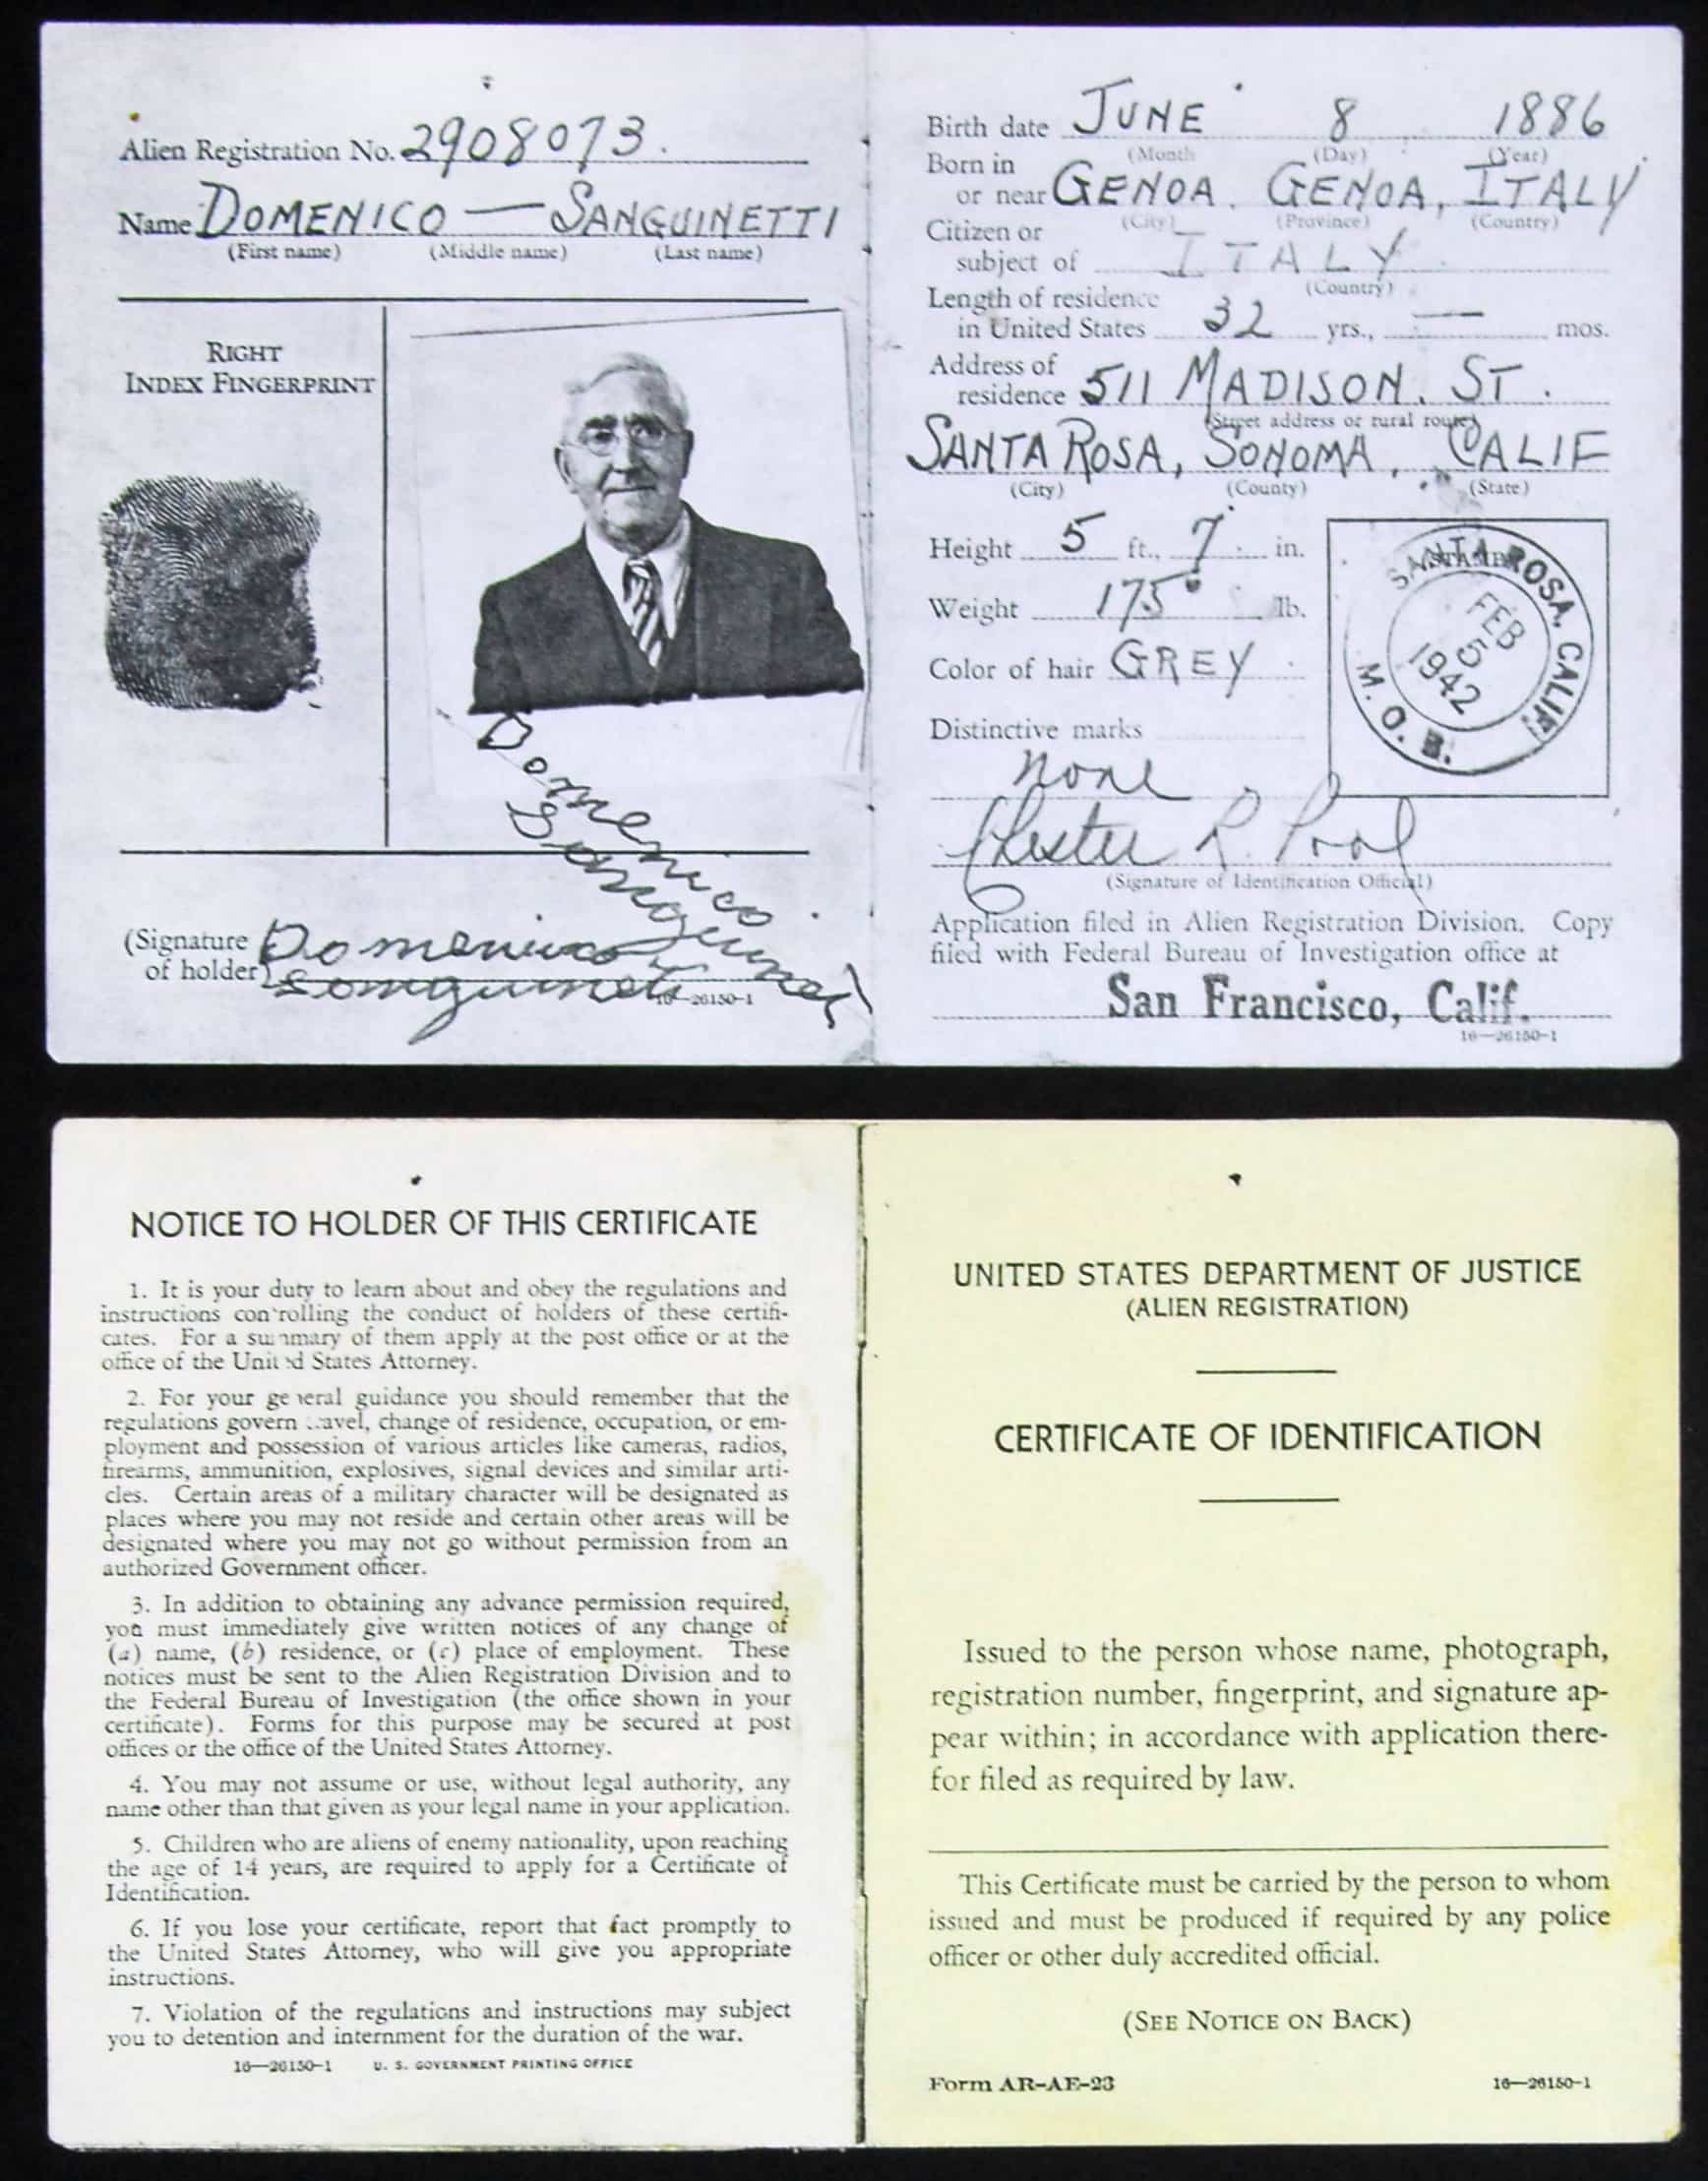 Alien Registration No. 2908073.
Name DOMENICO — SANGUINETTI
(First name) (Middle name) (Last name)
RIGHT
INDEX FINGERPRINT
Domenico
Sanguineti
(Signature
of holder)
Domenico
Sanguineti
16—26150-1
Birth date JUNE 8 1886
(Month) (Day) (Year)
Born in
or near GENOA. GENOA, ITALY
(City) (Province) (Country)
Citizen or
subject of ITALY
(Country)
Length of residence
in United States 32 yrs., — mos.
Address of
residence 511 MADISON. ST.
(Street address or rural route)
SANTA ROSA, SONOMA, CALIF
(City) (County) (State)
Height 5 ft., 7 in.
Weight 175 lb.
Color of hair GREY
Distinctive marks
none
STAMP
SANTA ROSA, CALIF.
FEB
5
1942
M. O. B.
Chester R. Pool
(Signature of Identification Official)
Application filed in Alien Registration Division. Copy
filed with Federal Bureau of Investigation office at
San Francisco, Calif.
16—26150-1
NOTICE TO HOLDER OF THIS CERTIFICATE
1. It is your duty to learn about and obey the regulations and
instructions controlling the conduct of holders of these certifi-
cates. For a summary of them apply at the post office or at the
office of the United States Attorney.
2. For your general guidance you should remember that the
regulations govern travel, change of residence, occupation, or em-
ployment and possession of various articles like cameras, radios,
firearms, ammunition, explosives, signal devices and similar arti-
cles. Certain areas of a military character will be designated as
places where you may not reside and certain other areas will be
designated where you may not go without permission from an
authorized Government officer.
3. In addition to obtaining any advance permission required,
you must immediately give written notices of any change of
(a) name, (b) residence, or (c) place of employment. These
notices must be sent to the Alien Registration Division and to
the Federal Bureau of Investigation (the office shown in your
certificate). Forms for this purpose may be secured at post
offices or the office of the United States Attorney.
4. You may not assume or use, without legal authority, any
name other than that given as your legal name in your application.
5. Children who are aliens of enemy nationality, upon reaching
the age of 14 years, are required to apply for a Certificate of
Identification.
6. If you lose your certificate, report that fact promptly to
the United States Attorney, who will give you appropriate
instructions.
7. Violation of the regulations and instructions may subject
you to detention and internment for the duration of the war.
16—26150-1 U. S. GOVERNMENT PRINTING OFFICE
UNITED STATES DEPARTMENT OF JUSTICE
(ALIEN REGISTRATION)
CERTIFICATE OF IDENTIFICATION
Issued to the person whose name, photograph,
registration number, fingerprint, and signature ap-
pear within; in accordance with application there-
for filed as required by law.
This Certificate must be carried by the person to whom
issued and must be produced if required by any police
officer or other duly accredited official.
(SEE NOTICE ON BACK)
Form AR-AE-23 16—26150-1